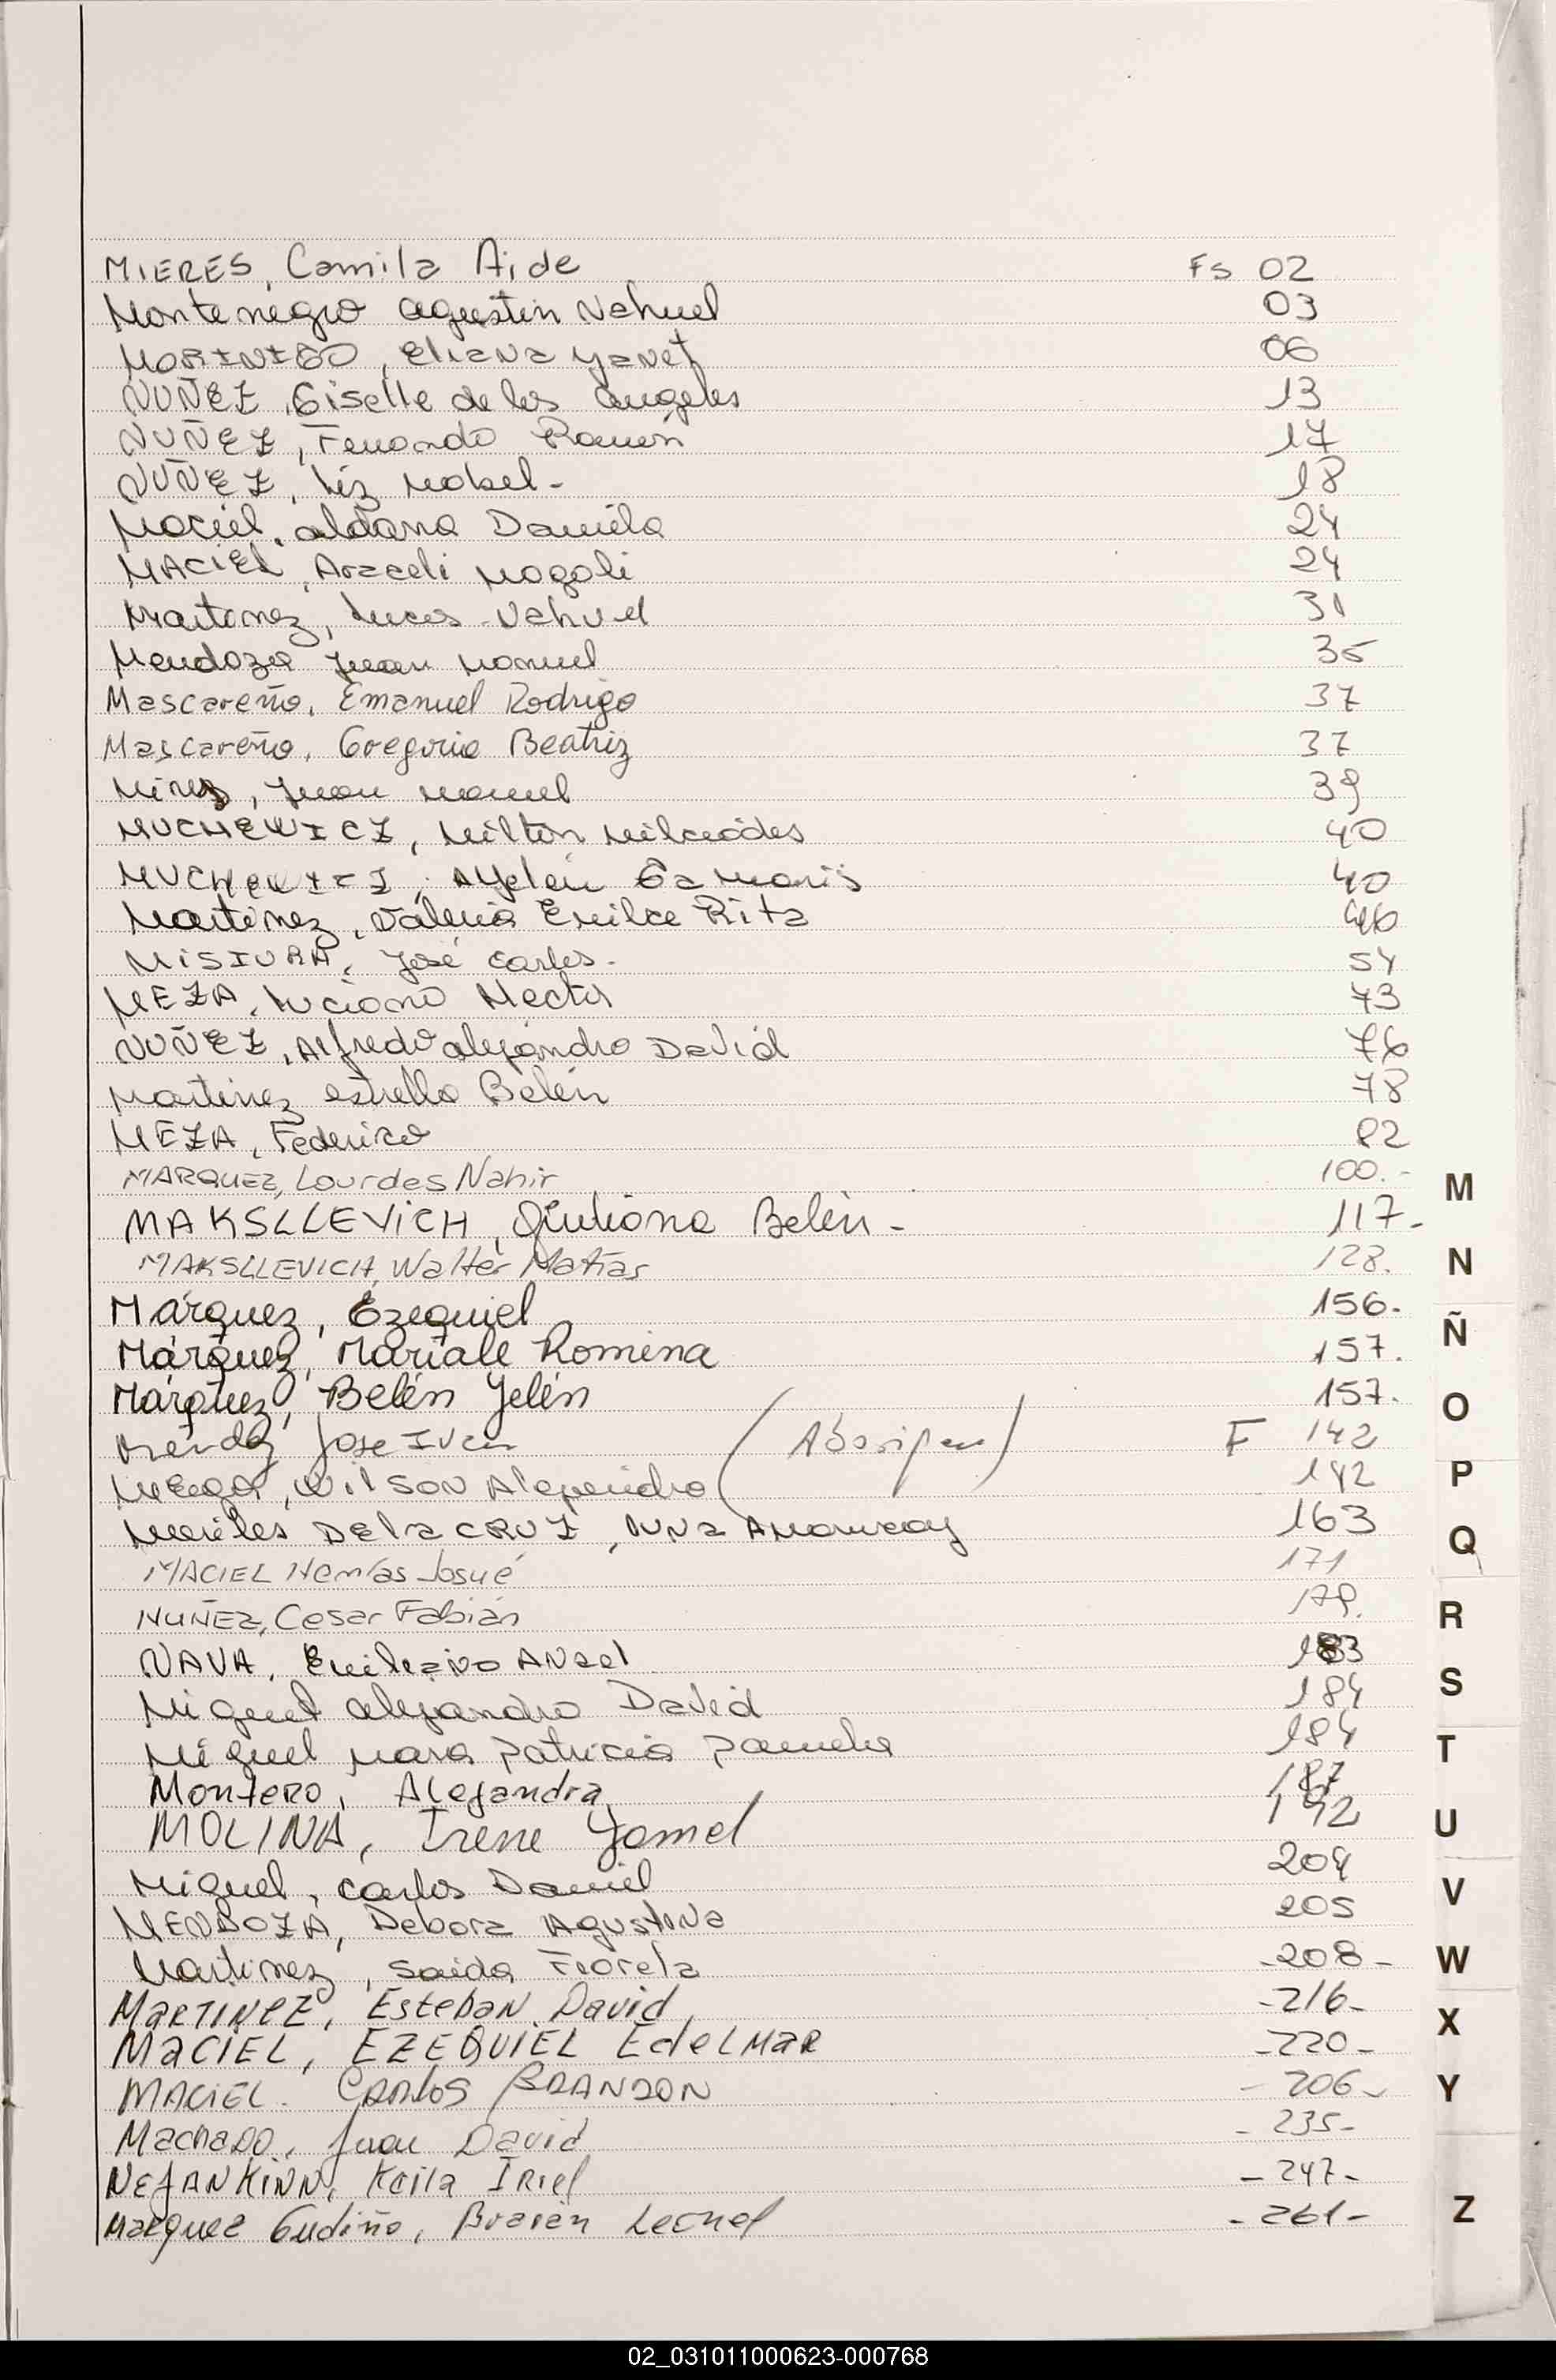 MIERES, Camila Aide Fs 02
Montenegro Agustin Nahuel 03
MORINIGO, Eliana Yanet 06
NUÑEZ, Giselle de los Angeles 13
NUÑEZ, Fernando Ramón 17
NUÑEZ, Liz Mabel - 18
Maciel, aldana Daniela 24
MACIEL, Araceli Magali 24
Martinez, Lucas Nahuel 31
Mendoza Juan Manuel 35
Mascareño, Emanuel Rodrigo 37
Mascareño, Gregorio Beatriz 37
Juan Manuel 39
MUCHEWICZ, Milton 40
MUCHEWICZ, Ayelen 40
Martinez, Valeria Emilce Rita 46
MISIURA, José Carlos. 54
MEZA, Luciano Hector 73
NUÑEZ, Alfredo alejandro David 76
Martinez estrella Belén 78
MEZA, Federico 82
MARQUEZ, Lourdes Nahir 100.-
MAKSLLEVICH, Giuliana Belén - 117-
MAKSLLEVICH, Walter Matías 128.
Márquez, Ezequiel 156.
Márquez, Mariale Romina 157.
Márquez, Belén Yelén 157.
Jose Ivan (Aborigen) F 142
Wilson Alejandro 142
DE la CRUZ, 163
MACIEL Nemías Josué 171
NUÑEZ, Cesar Fabián 179.
NAVA, Emiliano Angel 183
Miguel alejandro David 184
Miguel Mara Patricia Pamela 184
Montero, Alejandra 187
MOLINA, Irene Yamel 192
Miguel, Carlos Daniel 204
MENDOZA, Debora Agustina 205
Martinez, Saida Fiorela -208-
MARTINEZ, Esteban David -216-
MACIEL, EZEQUIEL EdelMAR -220-
MACIEL. CARlos BRANDON - 206-
MachaDO, Juan David - 235-
NEJANKINN, Keila IRiel - 247-
Marquez Gudiño, Braian Leonel - 261-
M
N
Ñ
O
P
Q
R
S
T
U
V
W
X
Y
Z
02_031011000623-000768